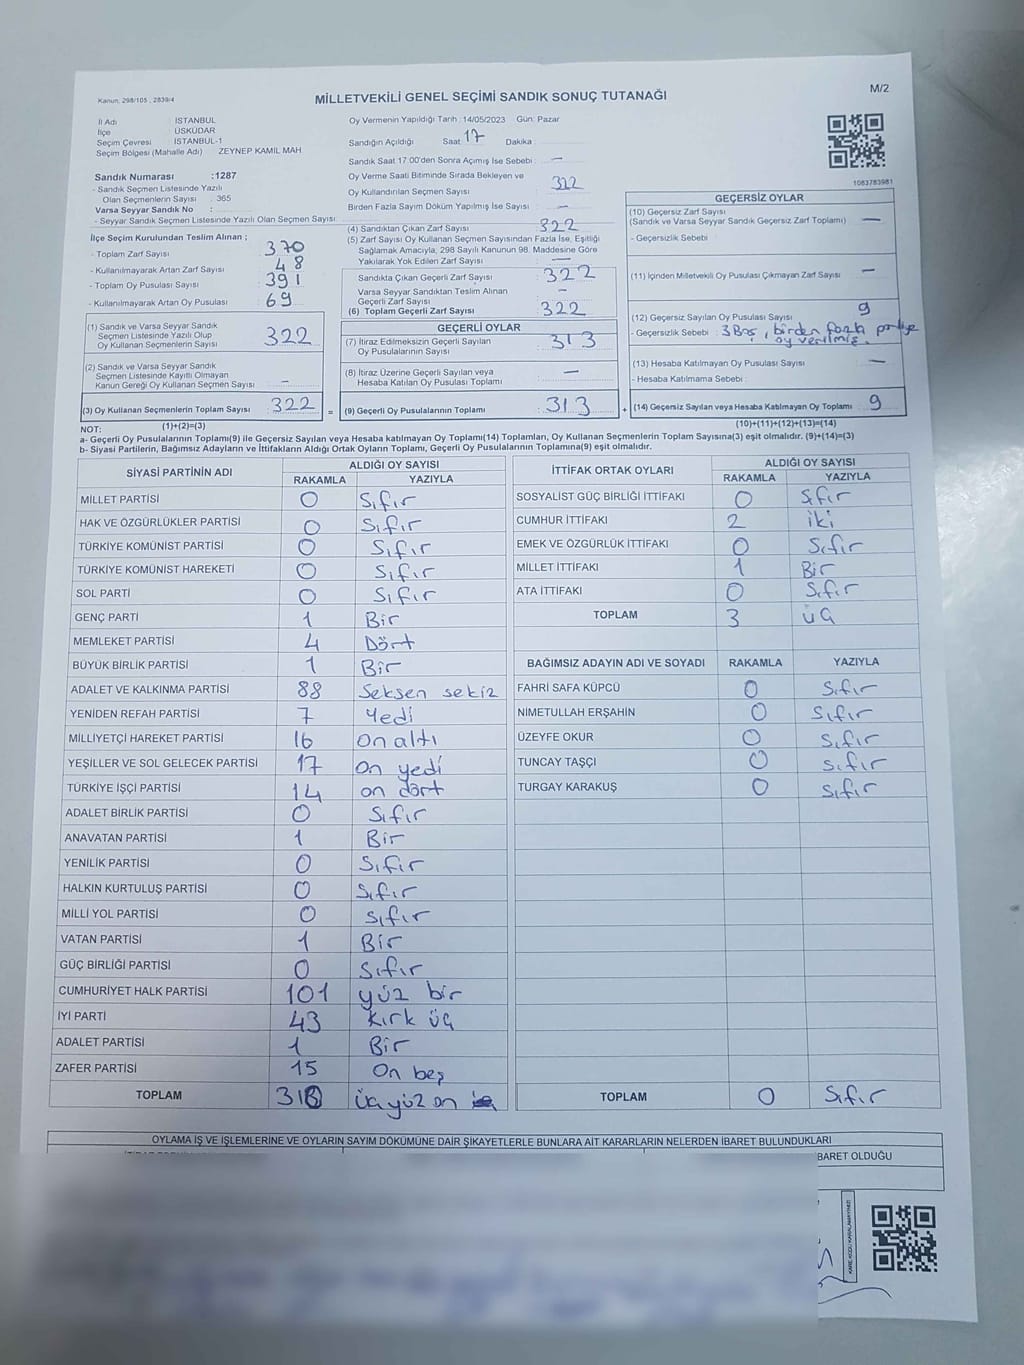 Kanun, 298/105 , 2839/4
MİLLETVEKİLİ GENEL SEÇİMİ SANDIK SONUÇ TUTANAĞI
M/2
İl Adı : İSTANBUL
İlçe : ÜSKÜDAR
Seçim Çevresi : İSTANBUL-1
Seçim Bölgesi (Mahalle Adı) ZEYNEP KAMİL MAH.
Sandık Numarası :1287
- Sandık Seçmen Listesinde Yazılı
Olan Seçmenlerin Sayısı : 365
Varsa Seyyar Sandık No :
- Seyyar Sandık Seçmen Listesinde Yazılı Olan Seçmen Sayısı :
İlçe Seçim Kurulundan Teslim Alınan ;
- Toplam Zarf Sayısı : 370
- Kullanılmayarak Artan Zarf Sayısı : 48
- Toplam Oy Pusulası Sayısı : 391
- Kullanılmayarak Artan Oy Pusulası : 69
(1) Sandık ve Varsa Seyyar Sandık
Seçmen Listesinde Yazılı Olup
Oy Kullanan Seçmenlerin Sayısı : 322
(2) Sandık ve Varsa Seyyar Sandık
Seçmen Listesinde Kayıtlı Olmayan
Kanun Gereği Oy Kullanan Seçmen Sayısı : -
(3) Oy Kullanan Seçmenlerin Toplam Sayısı : 322
(1)+(2)=(3)
Oy Vermenin Yapıldığı Tarih : 14/05/2023 Gün: Pazar
Sandığın Açıldığı Saat 17 Dakika :
Sandık Saat 17.00'den Sonra Açımış İse Sebebi : —
Oy Verme Saati Bitiminde Sırada Bekleyen ve
Oy Kullandırılan Seçmen Sayısı : 322
Birden Fazla Sayım Döküm Yapılmış İse Sayısı : —
(4) Sandıktan Çıkan Zarf Sayısı : 322
(5) Zarf Sayısı Oy Kullanan Seçmen Sayısından Fazla İse, Eşitliği
Sağlamak Amacıyla, 298 Sayılı Kanunun 98. Maddesine Göre
Yakılarak Yok Edilen Zarf Sayısı : —
Sandıkta Çıkan Geçerli Zarf Sayısı : 322
Varsa Seyyar Sandıktan Teslim Alınan
Geçerli Zarf Sayısı : -
(6) Toplam Geçerli Zarf Sayısı : 322
GEÇERLİ OYLAR
(7) İtiraz Edilmeksizin Geçerli Sayılan
Oy Pusulalarının Sayısı : 313
(8) İtiraz Üzerine Geçerli Sayılan veya
Hesaba Katılan Oy Pusulası Toplamı : —
= (9) Geçerli Oy Pusulalarının Toplamı : 313 +
1083783981
GEÇERSİZ OYLAR
(10) Geçersiz Zarf Sayısı
(Sandık ve Varsa Seyyar Sandık Geçersiz Zarf Toplamı) : —
- Geçersizlik Sebebi :
(11) İçinden Milletvekili Oy Pusulası Çıkmayan Zarf Sayısı : —
(12) Geçersiz Sayılan Oy Pusulası Sayısı : 9
- Geçersizlik Sebebi : 3 Boş, birden fazla partiye
oy verilmiş.
(13) Hesaba Katılmayan Oy Pusulası Sayısı : —
- Hesaba Katılmama Sebebi :
(14) Geçersiz Sayılan veya Hesaba Katılmayan Oy Toplamı : 9
(10)+(11)+(12)+(13)=(14)
NOT:
a- Geçerli Oy Pusulalarının Toplamı(9) ile Geçersiz Sayılan veya Hesaba katılmayan Oy Toplamı(14) Toplamları, Oy Kullanan Seçmenlerin Toplam Sayısına(3) eşit olmalıdır. (9)+(14)=(3)
b- Siyasi Partilerin, Bağımsız Adayların ve İttifakların Aldığı Oyların Toplamı, Geçerli Oy Pusulalarının Toplamına(9) eşit olmalıdır.
SİYASİ PARTİNİN ADI ALDIĞI OY SAYISI
RAKAMLA YAZIYLA
MİLLET PARTİSİ 0 Sıfır
HAK VE ÖZGÜRLÜKLER PARTİSİ 0 Sıfır
TÜRKİYE KOMÜNİST PARTİSİ 0 Sıfır
TÜRKİYE KOMÜNİST HAREKETİ 0 Sıfır
SOL PARTİ 0 Sıfır
GENÇ PARTİ 1 Bir
MEMLEKET PARTİSİ 4 Dört
BÜYÜK BİRLİK PARTİSİ 1 Bir
ADALET VE KALKINMA PARTİSİ 88 Seksen sekiz
YENİDEN REFAH PARTİSİ 7 Yedi
MİLLİYETÇİ HAREKET PARTİSİ 16 On altı
YEŞİLLER VE SOL GELECEK PARTİSİ 17 On yedi
TÜRKİYE İŞÇİ PARTİSİ 14 on dört
ADALET BİRLİK PARTİSİ 0 Sıfır
ANAVATAN PARTİSİ 1 Bir
YENİLİK PARTİSİ 0 Sıfır
HALKIN KURTULUŞ PARTİSİ 0 Sıfır
MİLLİ YOL PARTİSİ 0 Sıfır
VATAN PARTİSİ 1 Bir
GÜÇ BİRLİĞİ PARTİSİ 0 Sıfır
CUMHURİYET HALK PARTİSİ 101 yüz bir
İYİ PARTİ 43 Kırk üç
ADALET PARTİSİ 1 Bir
ZAFER PARTİSİ 15 On beş
TOPLAM üç yüz on
İTTİFAK ORTAK OYLARI ALDIĞI OY SAYISI
RAKAMLA YAZIYLA
SOSYALİST GÜÇ BİRLİĞİ İTTİFAKI 0 Sıfır
CUMHUR İTTİFAKI 2 iki
EMEK VE ÖZGÜRLÜK İTTİFAKI 0 Sıfır
MİLLET İTTİFAKI 1 Bir
ATA İTTİFAKI 0 Sıfır
TOPLAM 3 üç
BAĞIMSIZ ADAYIN ADI VE SOYADI RAKAMLA YAZIYLA
FAHRİ SAFA KÜPCÜ 0 Sıfır
NİMETULLAH ERŞAHİN 0 Sıfır
ÜZEYFE OKUR 0 Sıfır
TUNCAY TAŞÇI 0 Sıfır
TURGAY KARAKUŞ 0 Sıfır
TOPLAM 0 Sıfır
OYLAMA İŞ VE İŞLEMLERİNE VE OYLARIN SAYIM DÖKÜMÜNE DAİR ŞİKAYETLERLE BUNLARA AİT KARARLARIN NELERDEN İBARET BULUNDUKLARI
BARET OLDUĞU
KARE KODU KARALAMAYINIZ!